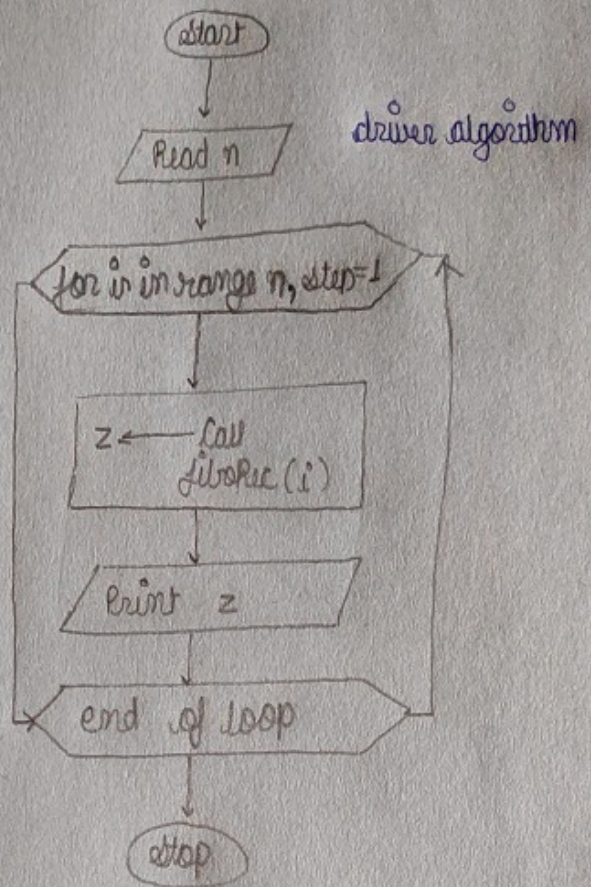 Start
Read n
driver algorithm
for i in range n, step=1
z ← Call
fiboRec (i)
Print z
end of loop
stop